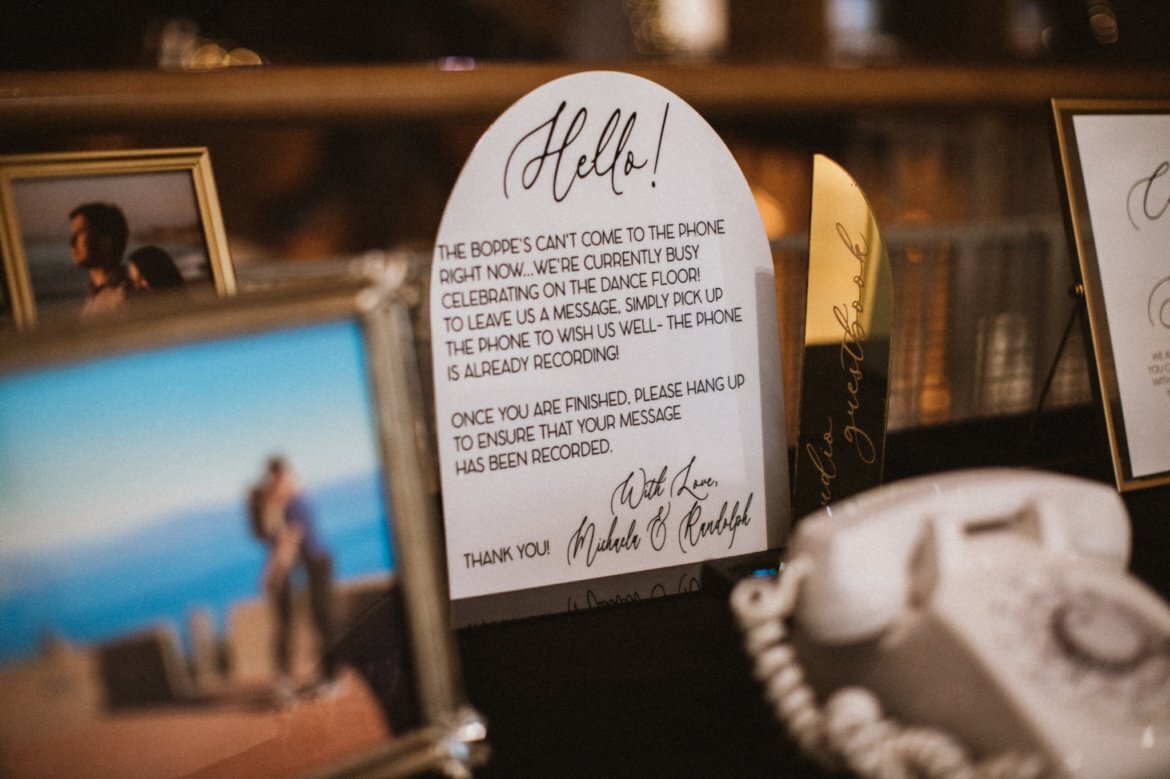 Hello!
THE BOPPE'S CAN'T COME TO THE PHONE
RIGHT NOW...WE'RE CURRENTLY BUSY
CELEBRATING ON THE DANCE FLOOR!
TO LEAVE US A MESSAGE, SIMPLY PICK UP
THE PHONE TO WISH US WELL- THE PHONE
IS ALREADY RECORDING!
ONCE YOU ARE FINISHED, PLEASE HANG UP
TO ENSURE THAT YOUR MESSAGE
HAS BEEN RECORDED.
With Love,
THANK YOU! Michaela & Randolph
guestbook